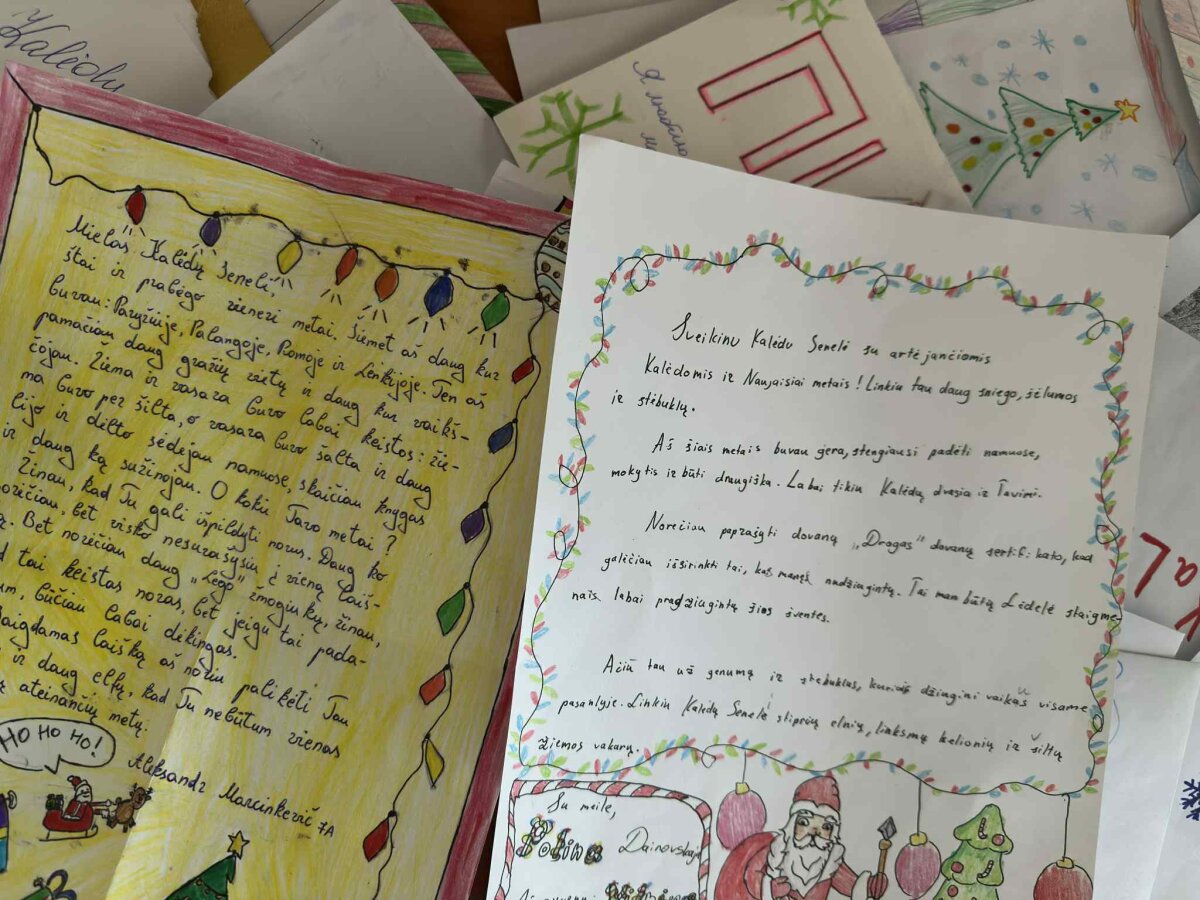 Kalėdų
Я люблю
П
Mielas Kalėdų Seneli,
štai ir prabėgo vieneri metai. Šiemet aš daug kur
buvau: Paryžiuje, Palangoje, Romoje ir Lenkijoje. Ten aš
pamačiau daug gražių vietų ir daug kur vaikš-
čojau. Žiema ir vasara buvo labai keistos: žie-
ma buvo per šilta, o vasara buvo šalta ir daug
lijo ir dėlto sėdėjau namuose, skaičiau knygas
ir daug ką sužinojau. O kokie Tavo metai?
Žinau, kad Tu gali išpildyti norus. Daug ko
norėčiau, bet visko nesurašysiu į vieną laiš-
Bet norėčiau daug „Lego" žmogiukų, žinau,
tai keistas noras, bet jeigu tai pada-
būčiau labai dėkingas.
Baigdamas laišką aš noriu palikėti Tau
ir daug elfų, kad Tu nebūtum vienas
ateinančių metų.
HO HO HO!
Aleksandr Marcinkevič 7A
Sveikinu Kalėdu Senelė su artėjančiomis
Kalėdomis ir Naujaisiai metais! Linkiu tau daug sniego, šėlumos
ir stėbuklų.
Aš šiais metais buvau gera, stengiausi padėti namuose,
mokytis ir būti draugiška. Labai tikiu Kalėdų dvasia ir Tavimi.
Norėčiau paprašyti dovaną „Drogas" dovanų sertifikato, kad
galėčiau išsirinkti tai, kas manęs nudžiugintų. Tai man būtų Lidelė staigme
nais labai pradžiugintų šios šventes.
Ačiū tau už gerumą ir stebuklus, kuriais džiugini vaikaš visame
pasaulyje. Linkiu Kalėdų Senelė stiprių elnių, linksmų kelionių ir šiltų
žiemos vakarų.
Su meile,
Polina Dainovskaja